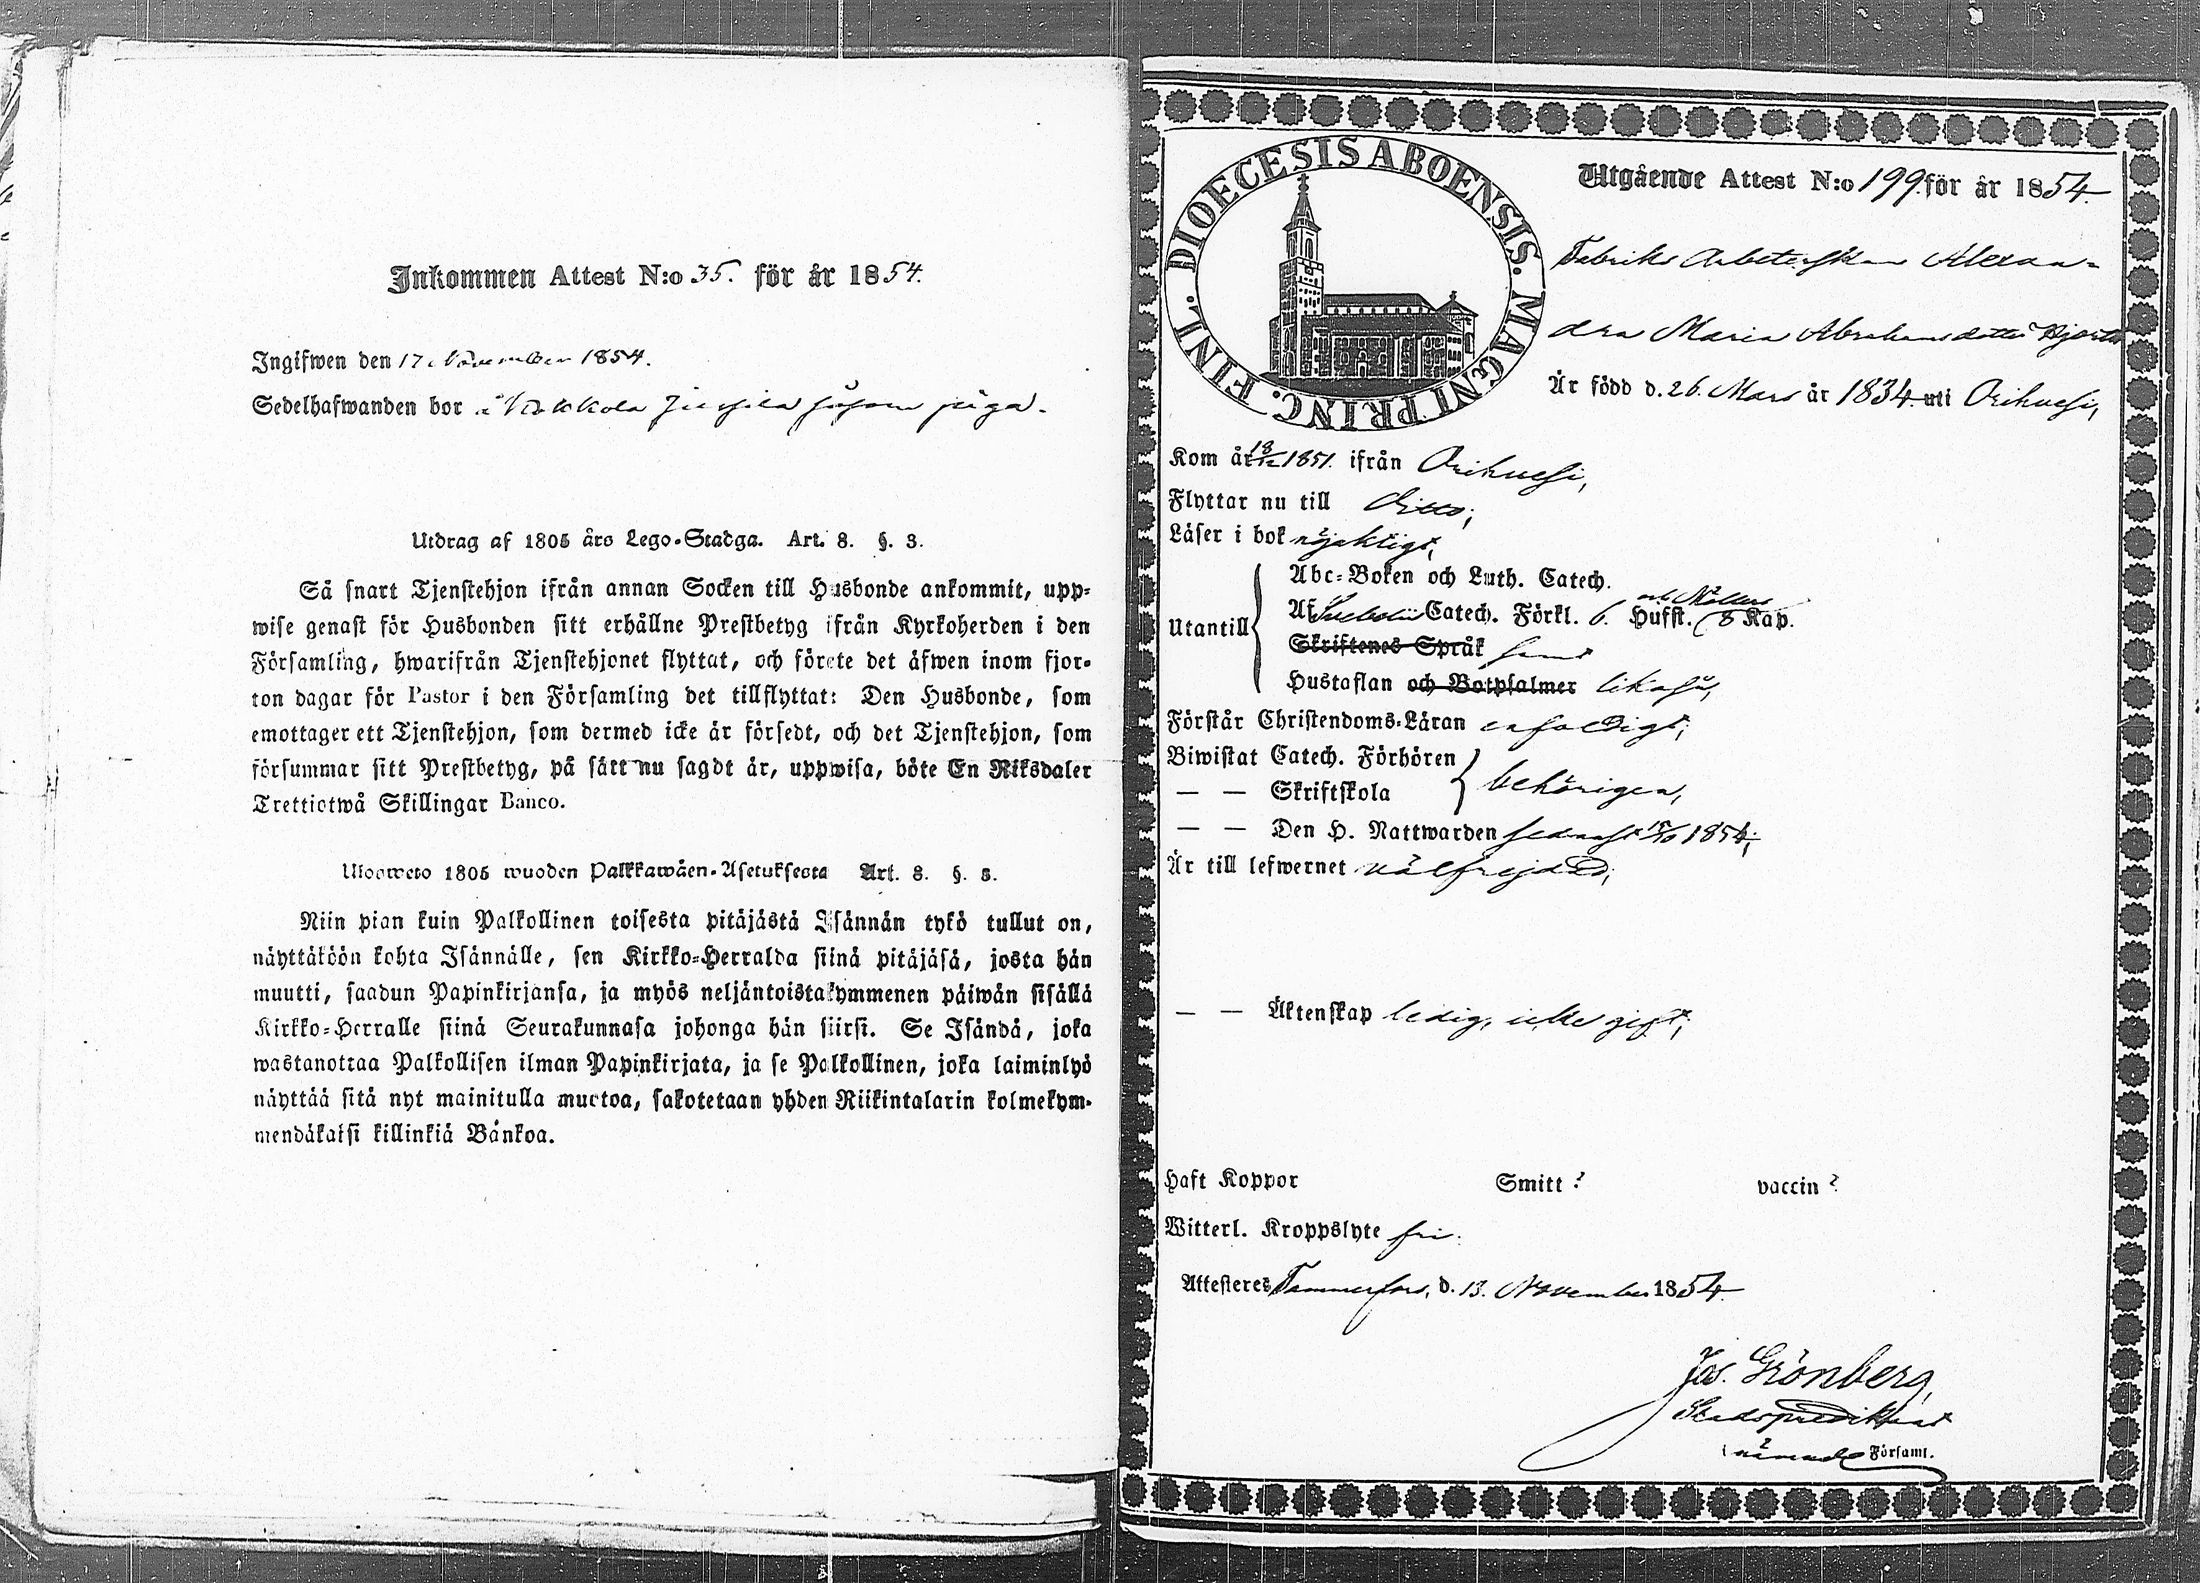 Inkommen Attest N:o 35. för år 1854.
Ingifwen den 17 November 1854.
Sedelhafwanden bor å Kokkola såsom piga.
Utdrag af 1805 års Lego-Stadga. Art. 8. §. 3.
Så snart Tjenstehjon ifrån annan Socken till Husbonde ankommit, upp=
wise genast för Husbonden sitt erhållne Prestbetyg ifrån Kyrkoherden i den
Församling, hwarifrån Tjenstehjonet flyttat, och förete det äfwen inom fjor-
ton dagar för Pastor i den Församling det tillflyttat: Den Husbonde, som
emottager ett Tjenstehjon, som dermed icke är försedt, och det Tjenstehjon, som
försummar sitt Prestbetyg, på sätt nu sagdt är, uppwisa, böte En Riksdaler
Trettiotwå Skillingar Banco.
Ulosweto 1805 wuoden Palkkawäen-Asetuksesta Art. 8. §. 3.
Niin pian kuin Palkollinen toisesta pitäjästä Isännän tykö tullut on,
näyttäköön kohta Isännälle, sen Kirkko=Herralda siinä pitäjäsä, josta hän
muutti, saadun Papinkirjansa, ja myös neljäntoistakymmenen päiwän sisällä
Kirkko=Herralle siinä Seurakunnasa johonga hän siirsi. Se Isändä, joka
wastanottaa Palkollisen ilman Papinkirjata, ja se Palkollinen, joka laiminlyö
näyttää sitä nyt mainitulla muotoa, sakotetaan yhden Riikintalarin kolmekym-
mendäkaksi killinkiä Bänkoa.
FINL. DIOECESIS ABOENSIS. MAGNI PRINC.
Utgående Attest N:o 199. för år 1854.
Fabriks Arbeterskan Alexan-
dra Maria Abrahamsdotter Hjorth
Är född d. 26. Mars år 1834. uti Orihvesi,
Kom år 18/12 1851. ifrån Orihvesi,
Flyttar nu till Ditto;
Läser i bok nöjaktigt,
Utantill
Abc=Boken och Luth. Catech.
Af Svebelii Catech. Förkl. 6. Hufst. och Möllers 8 Kap.
Skriftenes Språk samt
Hustaflan och Botpsalmer likaså,
Förstår Christendoms-Läran enfaldigt;
Biwistat Catech. Förhören
— — Skriftskola behörigen,
— — Den H. Nattwarden sednast 15/10 1854;
Är till lefwernet välfrejdad;
— — Äktenskap ledig, icke gift;
Haft Koppor Smitt? vaccin?
Witterl. Kroppslyte fri.
Attesteres Tammerfors, d. 13. November 1854.
Jos. Grönberg,
Stadspredikant
i nämnde Församl.